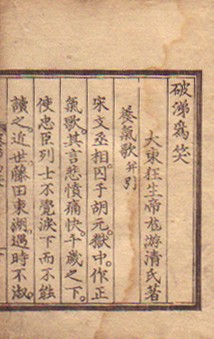 破涕爲笑
大東狂生帝尨游清氏著
養氣歌并引
宋文丞相囚于胡元獄中作正
氣歌其言悲憤痛快千歲之下
使忠臣烈士不覺淚下而不能
讀之近世藤田東湖遇時不淑